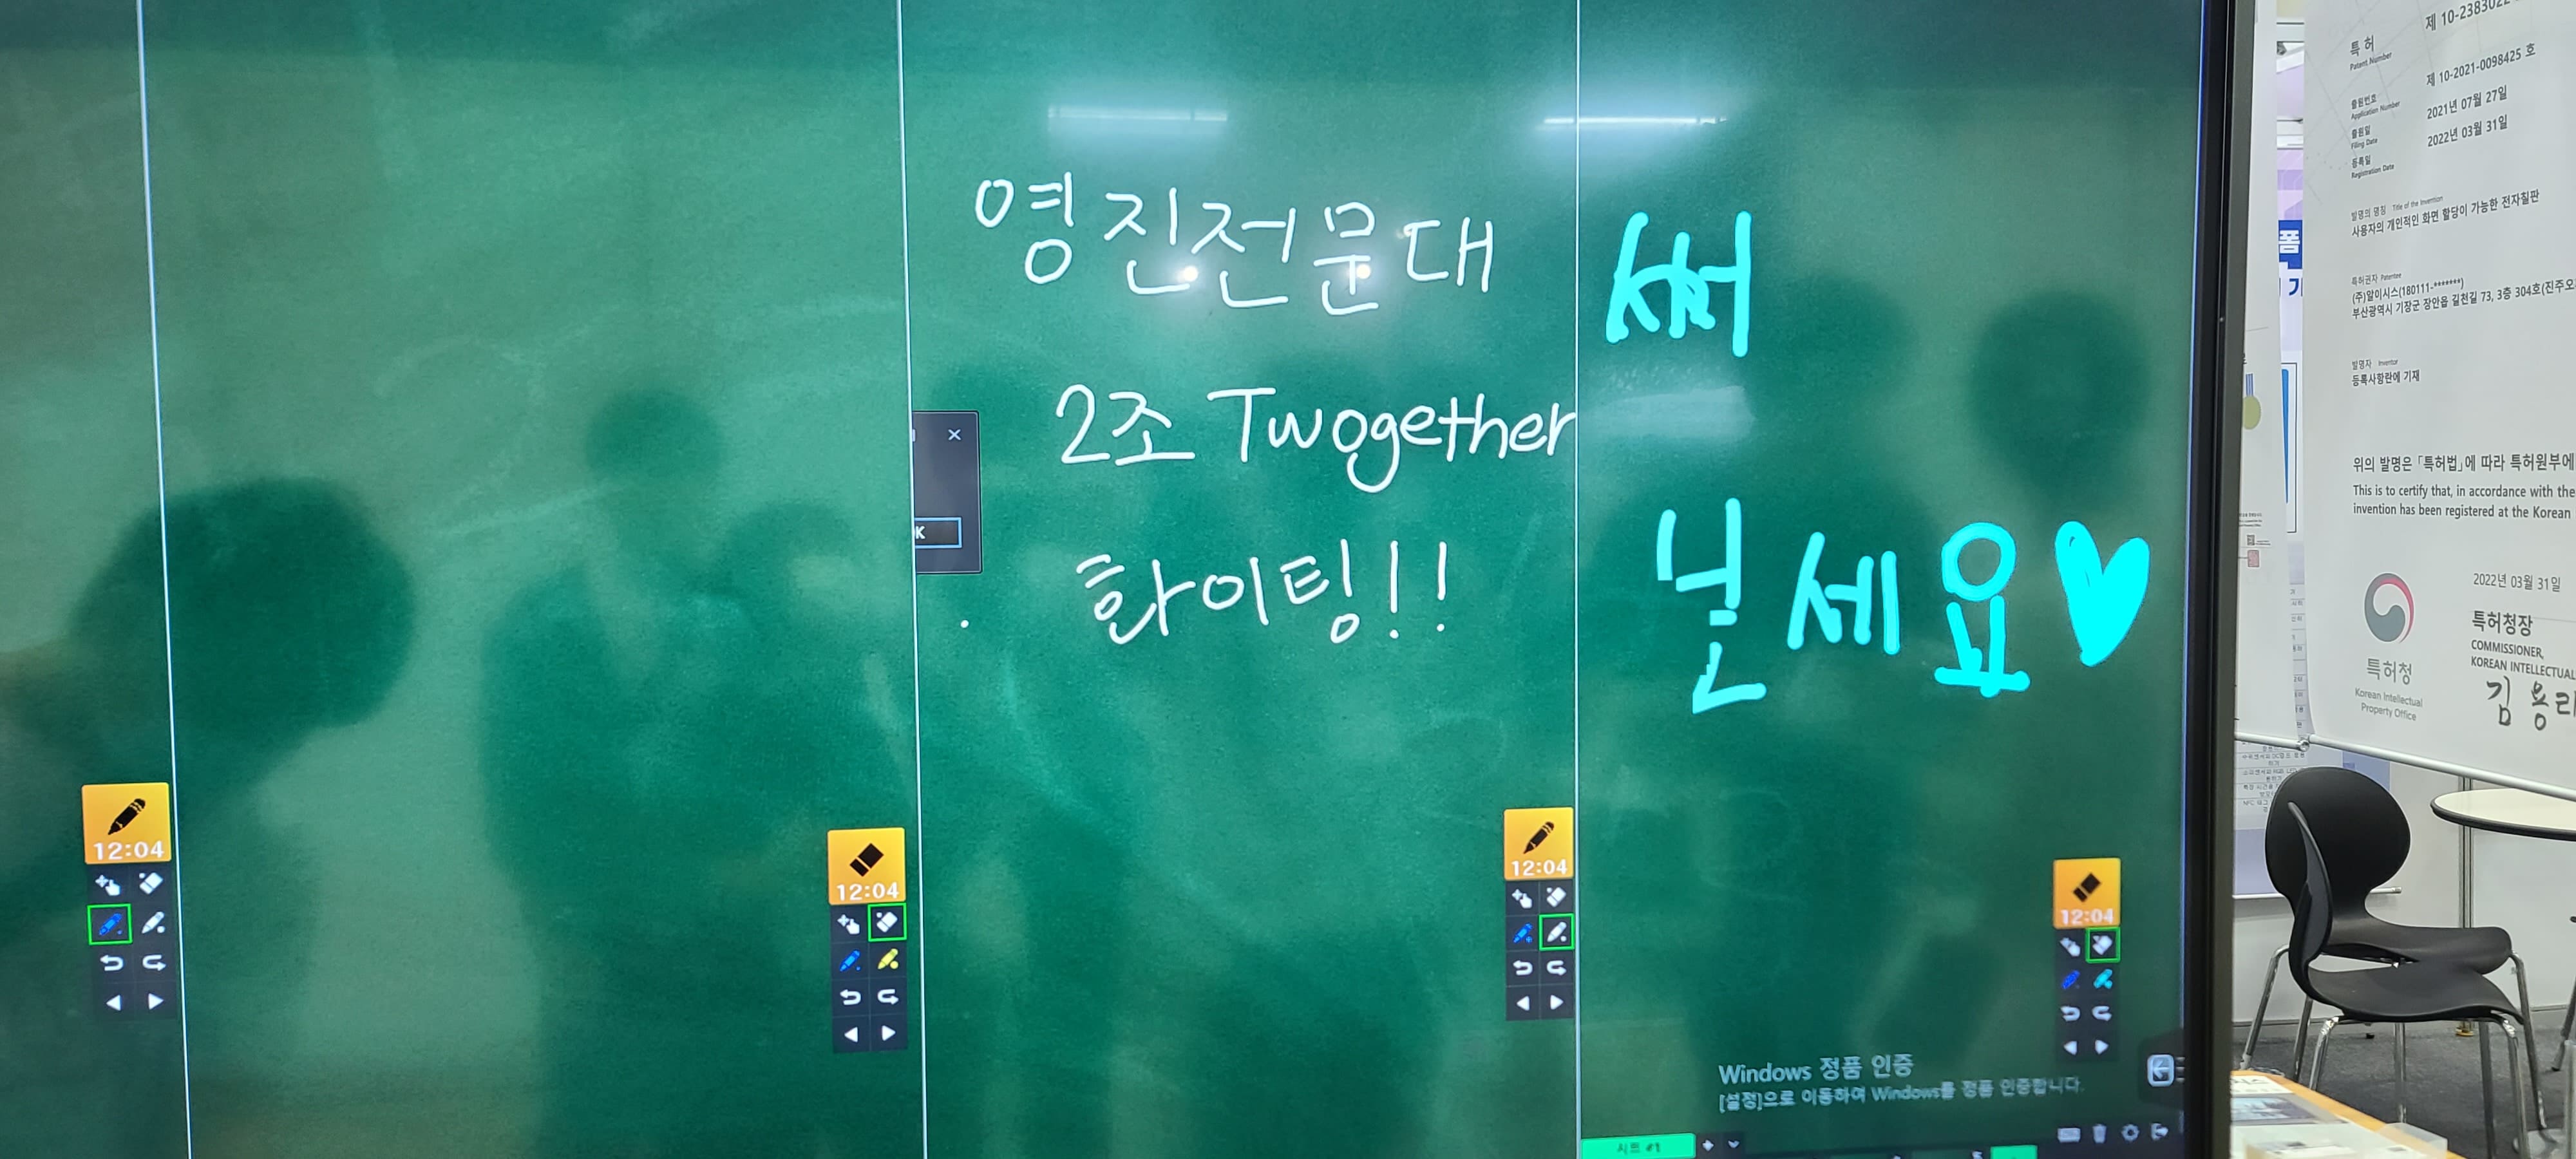 영진전문대
2조 Twogether
화이팅!!
써
보세요
12:04
12:04
12:04
12:04
Windows 정품 인증
[설정]으로 이동하여 Windows를 정품 인증합니다.
시트 #1
특허
Patent Number
제 10-2383022
출원번호
Application Number
제 10-2021-0098425 호
출원일
Filing Date
2021년 07월 27일
등록일
Registration Date
2022년 03월 31일
발명의 명칭 Title of the Invention
사용자의 개인적인 화면 할당이 가능한 전자칠판
특허권자 Patentee
(주)알이시스(180111-*******)
부산광역시 기장군 장안읍 길천길 73, 3층 304호(진주오
발명자 Inventor
등록사항란에 기재
위의 발명은 「특허법」에 따라 특허원부에
This is to certify that, in accordance with the
invention has been registered at the Korean
2022년 03월 31일
특허청장
COMMISSIONER,
KOREAN INTELLECTUAL
특허청
Korean Intellectual
Property Office
김용래